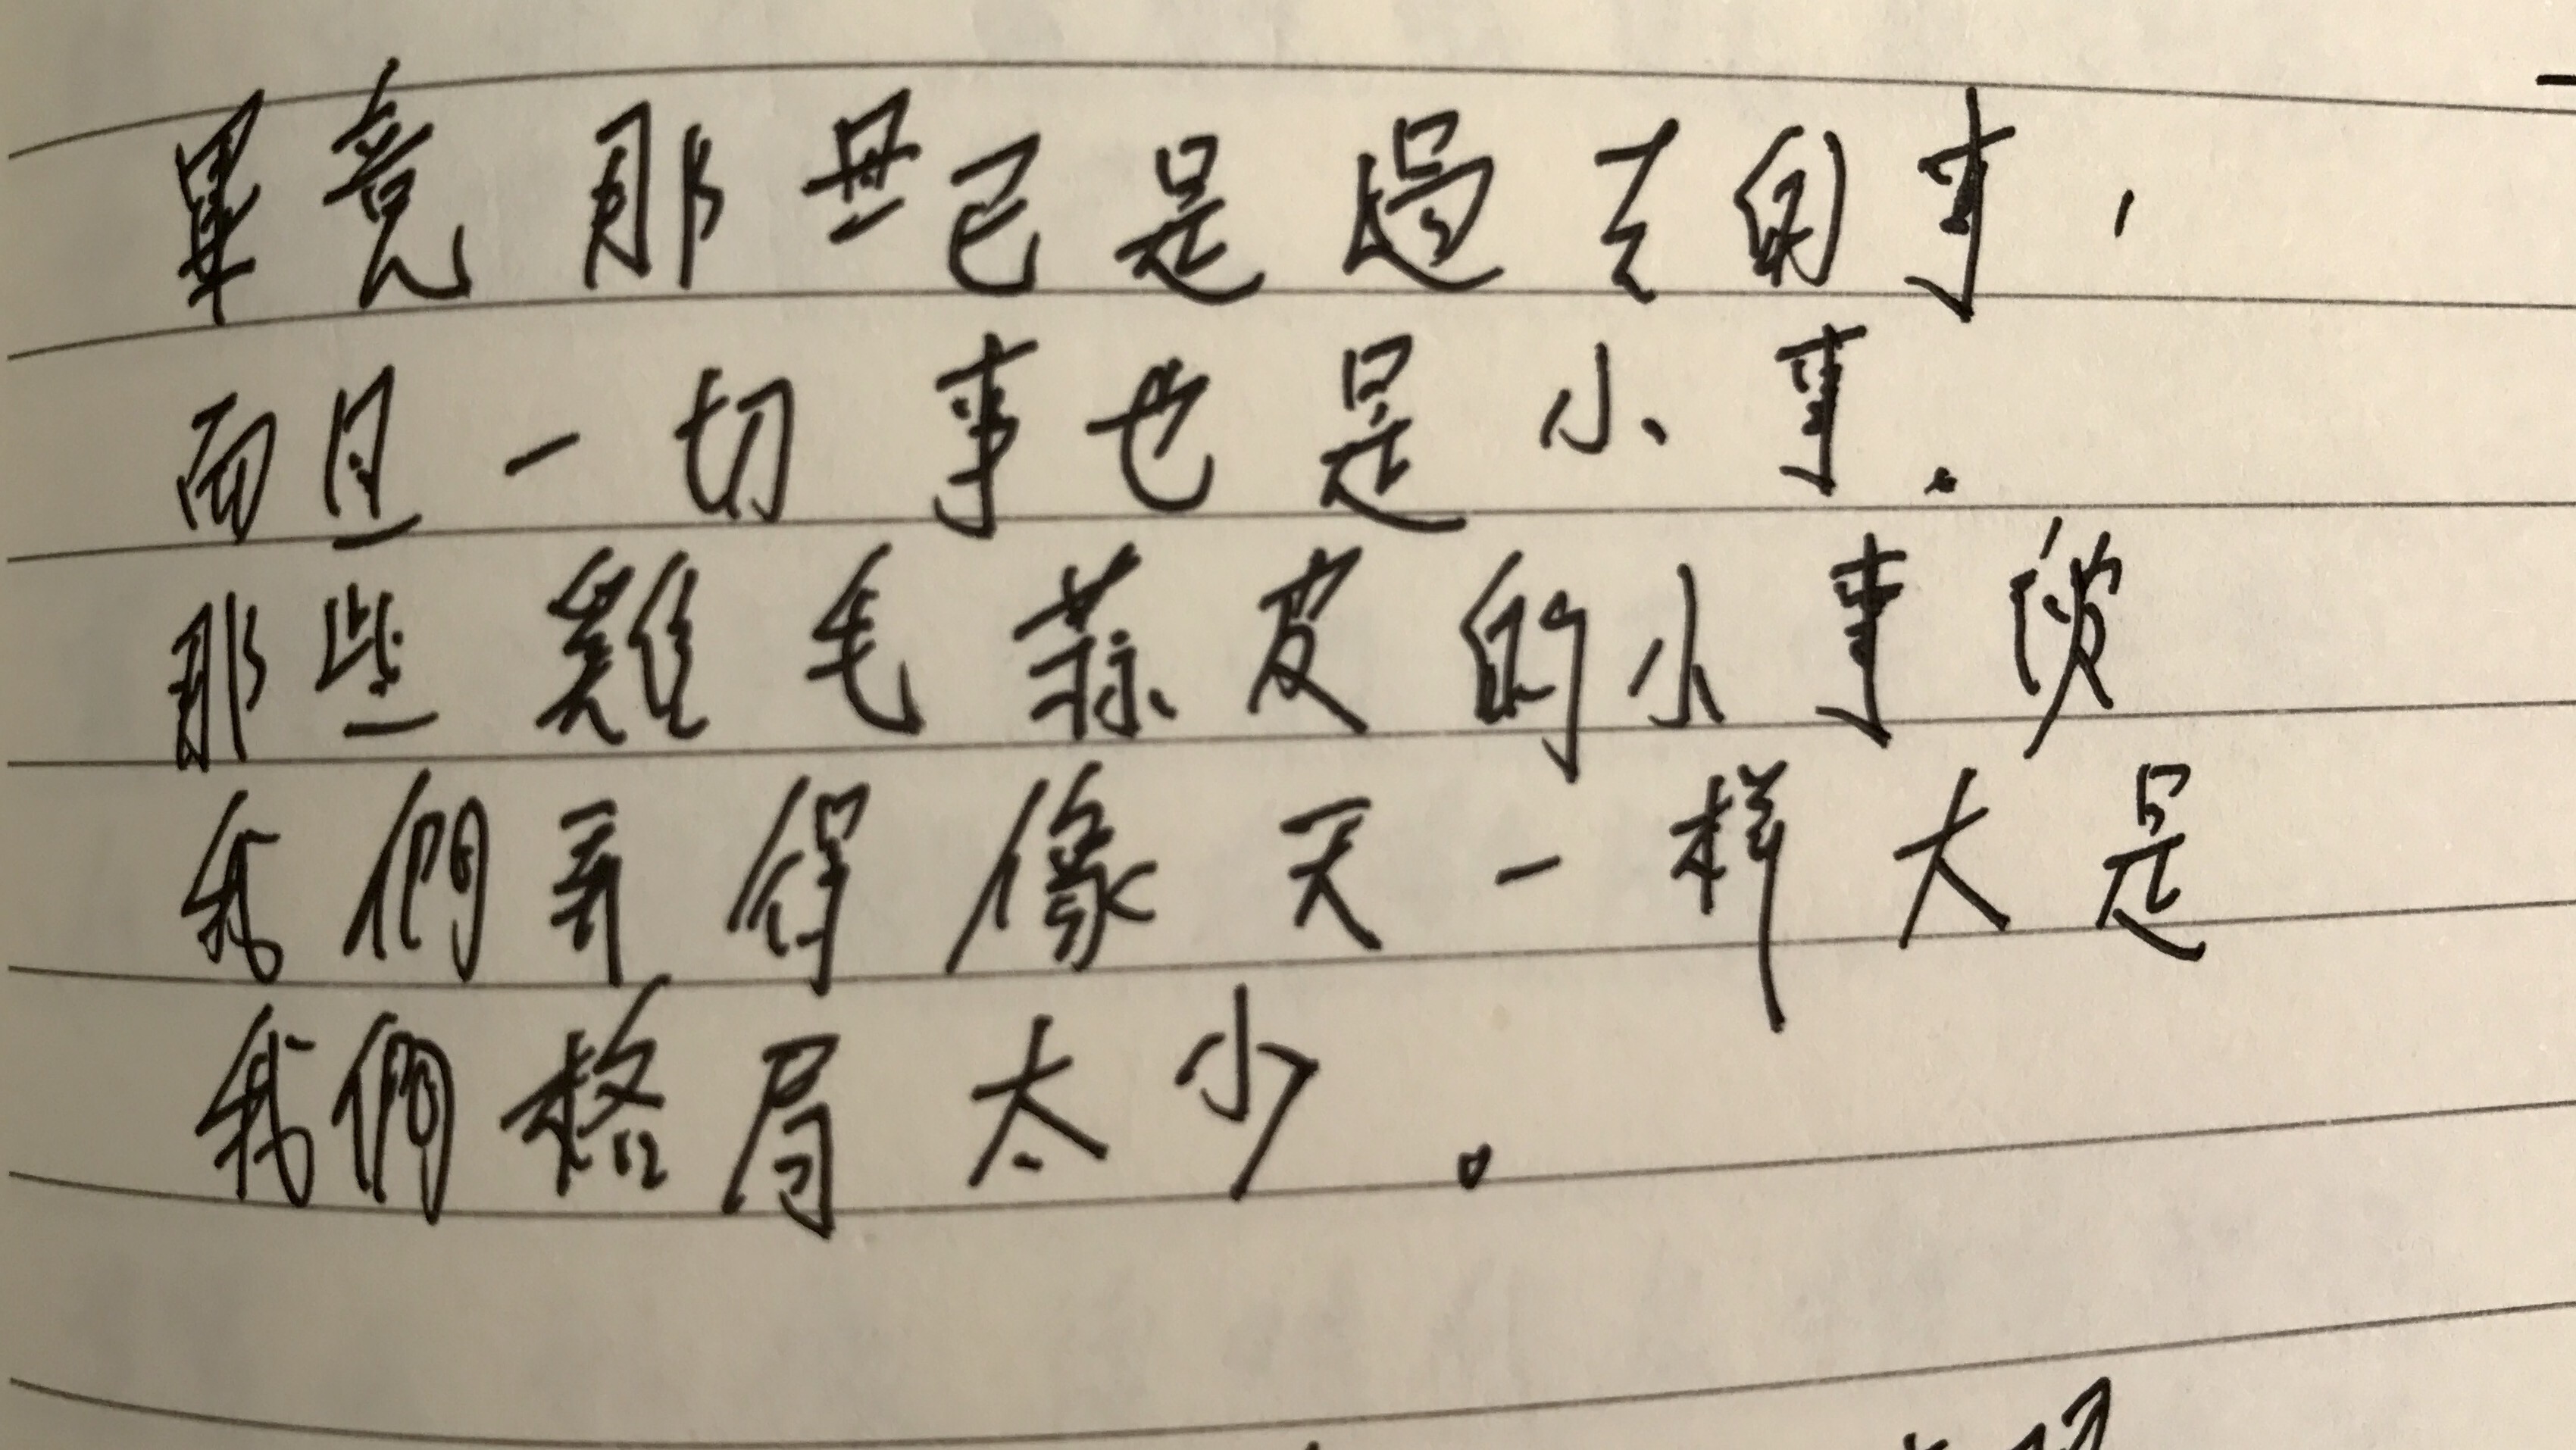 畢竟那些已是過去的事，
而且一切事也是小事.
那些雞毛蒜皮的小事被
我們弄得像天一样大是
我們格局太少。